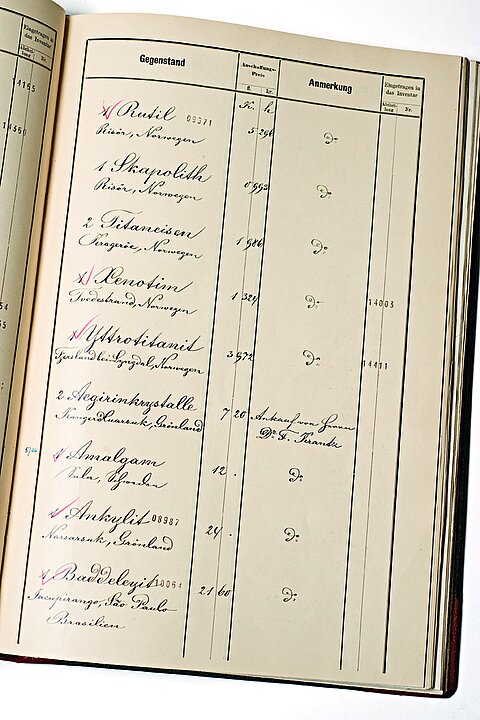 Eingetragen in
das Inventar
Abthei-
lung
Nr.
4165
14360
Gegenstand
Anschaffungs-
Preis
fl.
kr.
Anmerkung
Eingetragen in
das Inventar
Abthei-
lung
Nr.
K. h
1 Rutil 09371
Risör, Norwegen
5 296
do
1 Skapolith
Risör, Norwegen
0 993
do
2 Titaneisen
Krageröe, Norwegen
1 986
do
1 Xenotim
Tvedestrand, Norwegen
1 324
do
14003
1 Yttrotitanit
bei Lyngdal, Norwegen
3 972
do
14411
2 Aegirinkrystalle
Kangerdluarsuk, Grönland
7 20
Ankauf von Herrn
Dr. F. Krantz
1 Amalgam
Sala, Schweden
12 .
do
1 Ankylit 08987
Narsarsuk, Grönland
24 .
do
1 Baddeleyit 10054
Jacupiranga, São Paulo
Brasilien
21 60
do